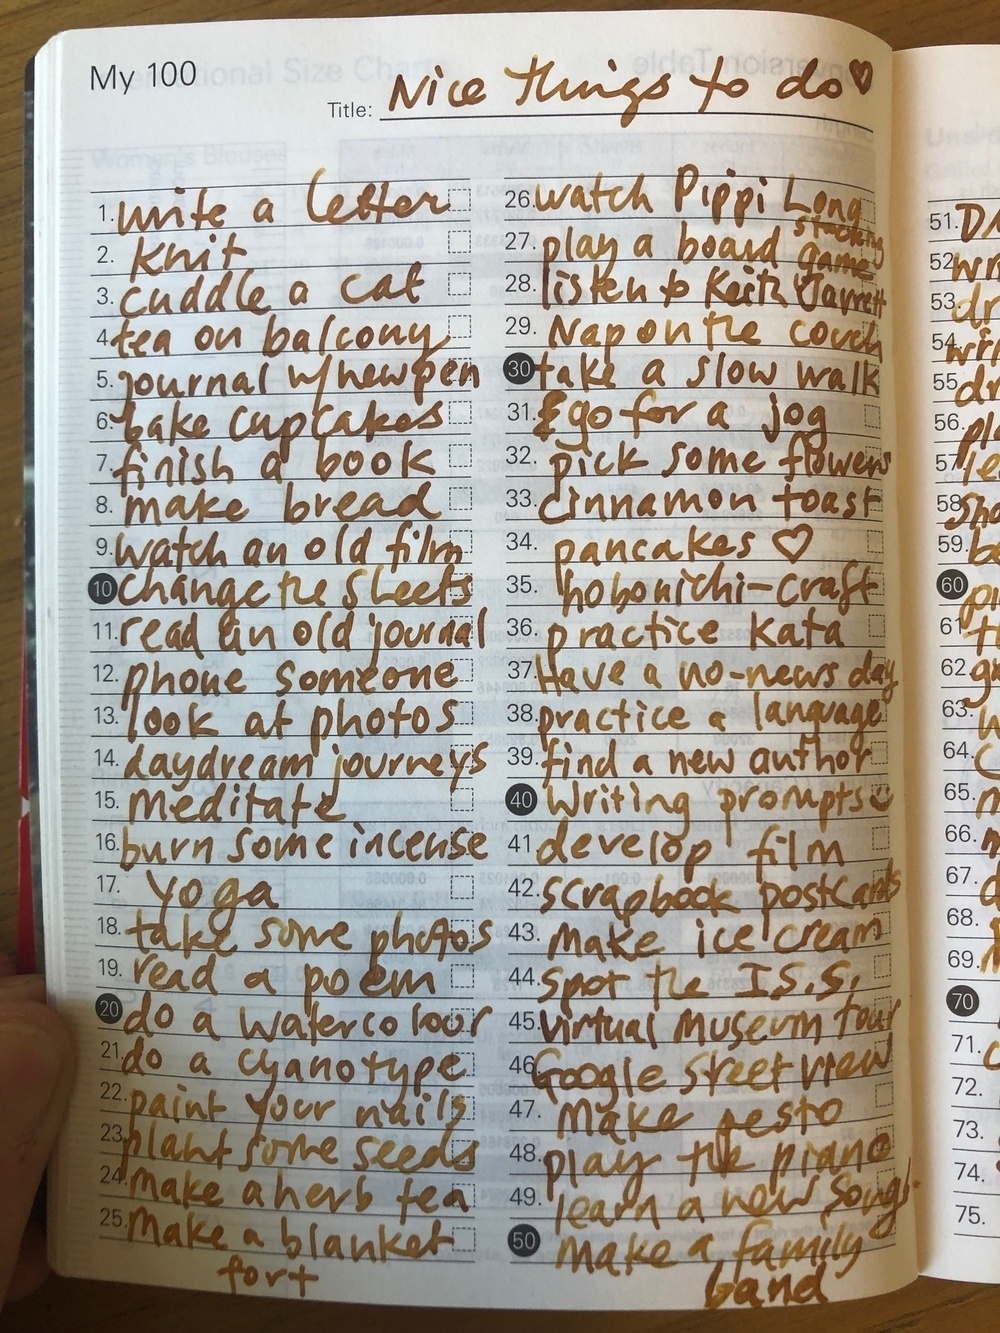 My 100
Title: Nice things to do ♡
1. write a letter
2. Knit
3. cuddle a cat
4. tea on balcony
5. journal w/new pen
6. bake cupcakes
7. finish a book
8. make bread
9. watch an old film
10 Change the sheets
11. read an old journal
12. phone someone
13. look at photos
14. daydream journeys
15. Meditate
16. burn some incense
17. Yoga
18. take some photos
19. read a poem
20 do a watercolour
21. do a cyanotype
22. paint your nails
23. plant some seeds
24. make a herb tea
25. Make a blanket
fort
26. watch Pippi Long
stocking
27. play a board game
28. listen to Keith Jarrett
29. Nap on the couch
30 take a slow walk
31. & go for a jog
32. pick some flowers
33. cinnamon toast
34. pancakes ♡
35. hobonichi-craft
36. practice Kata
37. Have a no-news day
38. practice a language
39. find a new author
40 Writing prompts
41 develop film
42. scrapbook postcards
43. Make ice cream
44. spot the I.S.S.
45. virtual Museum tour
46. Google Street view
47. Make pesto
48. play the piano
49. learn a new song
50 Make a family
band
51.
52.
53.
54.
55
56.
57
58
59.
60
61
62
63.
64.
65.
66.
67.
68.
69.
70
71.
72.
73.
74.
75.